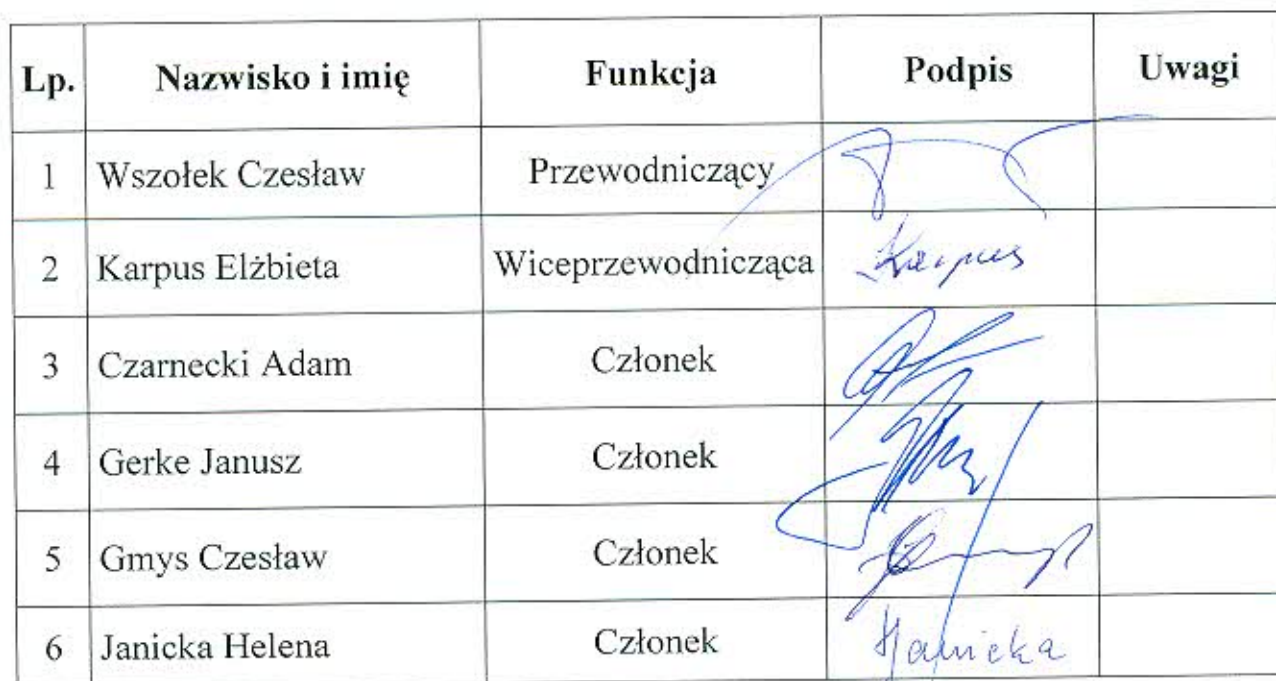 Lp. Nazwisko i imię Funkcja Podpis Uwagi
1 Wszołek Czesław Przewodniczący
2 Karpus Elżbieta Wiceprzewodnicząca Karpus
3 Czarnecki Adam Członek
4 Gerke Janusz Członek
5 Gmys Czesław Członek
6 Janicka Helena Członek HJanicka